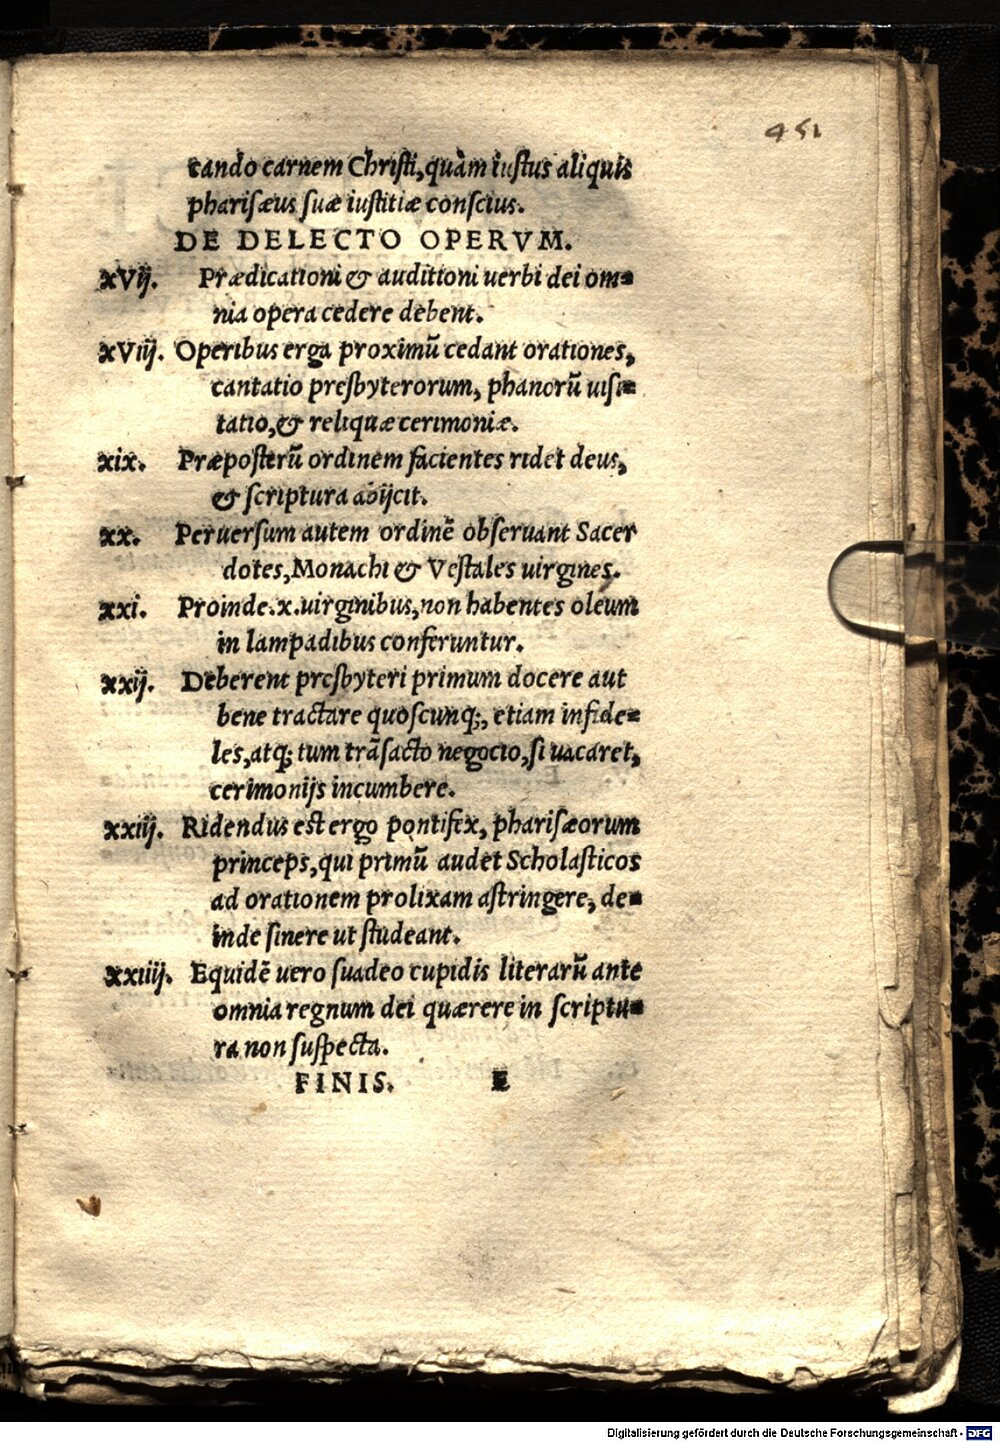 451
tando carnem Christi, quàm iustus aliquis
pharisæus suæ iustitiæ conscius.
DE DELECTO OPERVM.
xVij. Prædicationi & auditioni uerbi dei om=
nia opera cedere debent.
xViij. Operibus erga proximũ cedant orationes,
cantatio presbyterorum, phanorũ uisi=
tatio, & reliquæ cerimoniæ.
xix. Præposterũ ordinem facientes ridet deus,
& scriptura abijcit.
xx. Peruersum autem ordinẽ obseruant Sacer
dotes, Monachi & Vestales uirgines.
xxi. Proinde .x. uirginibus, non habentes oleum
in lampadibus conferuntur.
xxij. Deberent presbyteri primum docere aut
bene tractare quoscunq;, etiam infide=
les, atq; tum trãsacto negocio, si uacaret,
cerimonijs incumbere.
xxiij. Ridendus est ergo pontifex, pharisæorum
princeps, qui primũ audet Scholasticos
ad orationem prolixam astringere, de=
inde sinere ut studeant.
xxiiij. Equidẽ uero suadeo cupidis literarũ ante
omnia regnum dei quærere in scriptu=
ra non suspecta.
FINIS. E
Digitalisierung gefördert durch die Deutsche Forschungsgemeinschaft - DFG